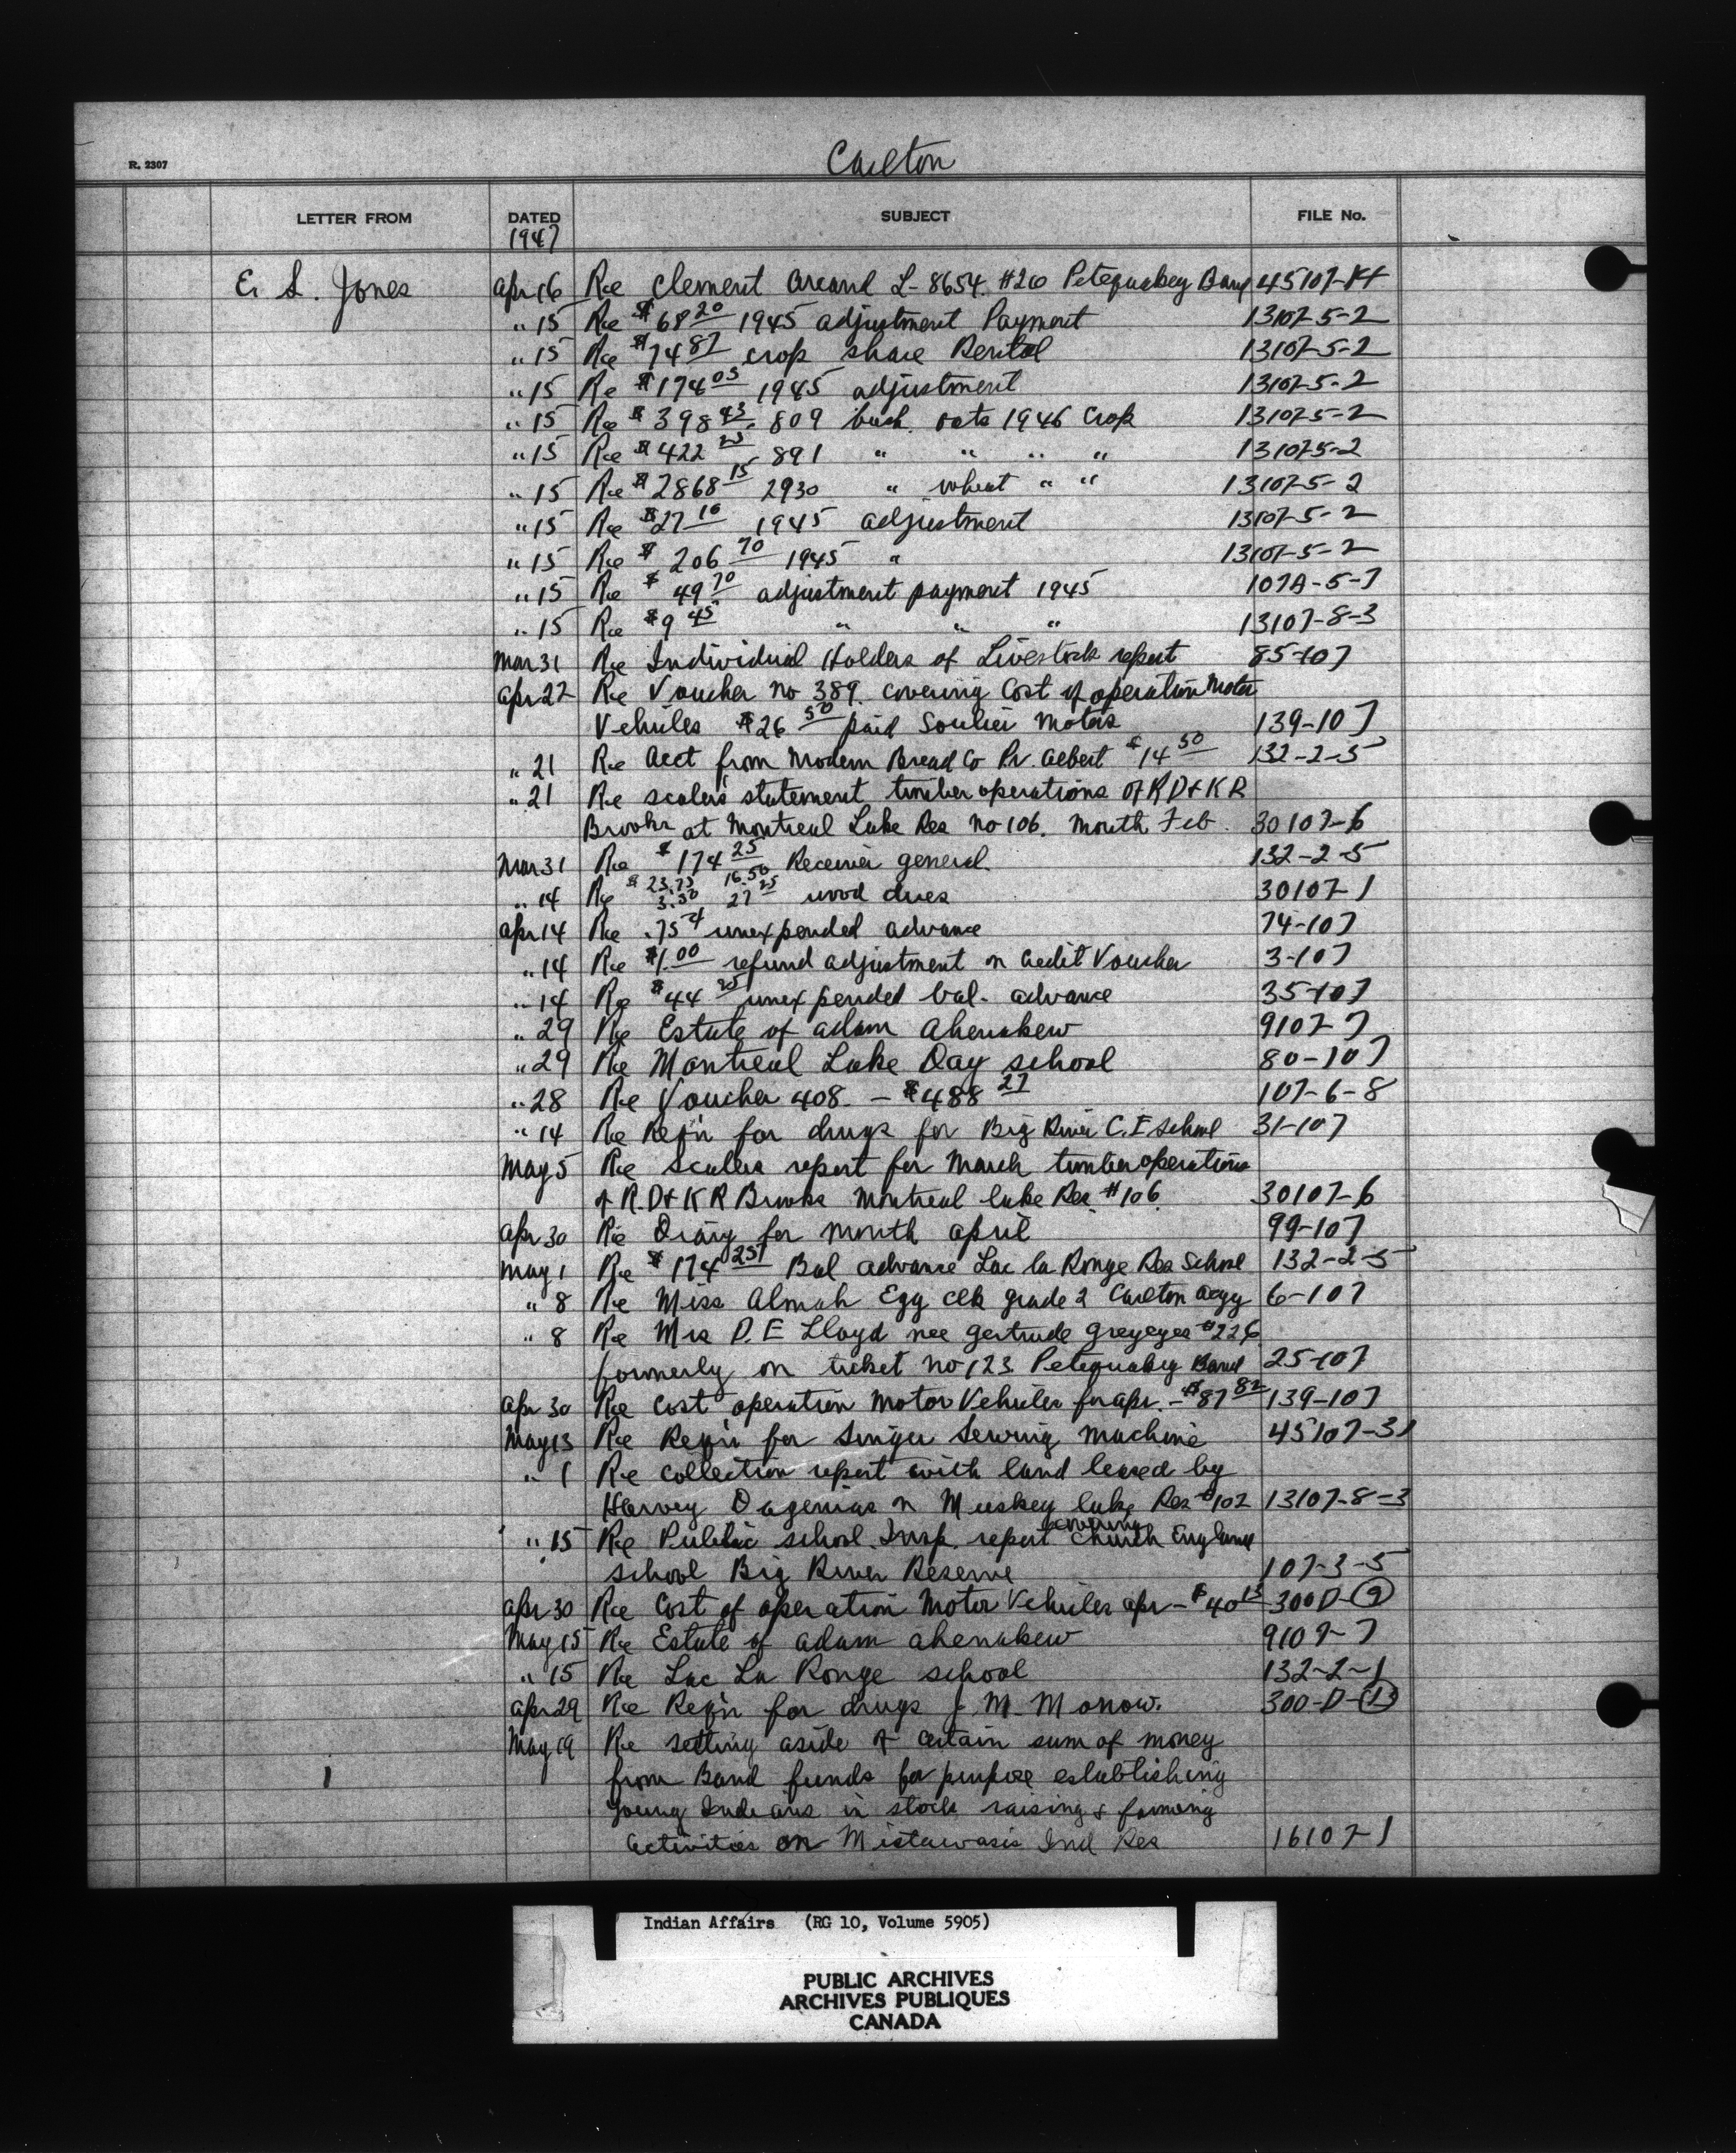 R. 2307
Carlton
LETTER FROM DATED SUBJECT FILE No.
1947
E. S. Jones Apr 16 Re Clement Arcand L-8654. #20 Petequakey Band 45107-
" 15 Re $68 20 1945 adjustment Payment 13107-5-2
" 15 Re $74 87 crop share Rental 13107-5-2
" 15 Re $174 05 1945 adjustment 13107-5-2
" 15 Re $398 43 - 809 bush. oats 1946 crop 13107-5-2
" 15 Re $422 - 891 " " " " 13107-5-2
" 15 Re $2868 15 2930 " wheat " " 13107-5-2
" 15 Re $27 10 1945 adjustment 13107-5-2
" 15 Re $206 70 1945 " 13107-5-2
" 15 Re $49 70 adjustment payment 1945 107A-5-7
" 15 Re $9 45 " " " 13107-8-3
Mar 31 Re Individual Holders of Livestock report 85-107
Apr 22 Re Voucher no 389. covering Cost of operation Motor
Vehicles $26 50 paid Soulier Motors 139-107
" 21 Re Acct from Modern Bread Co Pr. Albert $14 50 132-2-5
" 21 Re scalers statement timber operations of R D & K R
Brooks at Montreal Lake Res no 106. Month Feb. 30107-6
Mar 31 Re $174 25 Receiver general. 132-2-5
" 14 Re $23.75 16.50
3.50 27 25 wood dues 30107-1
Apr 14 Re .75¢ unexpended advance 74-107
" 14 Re $1.00 refund adjustment on Credit Voucher 3-107
" 14 Re $44 unexpended bal. advance 35-107
" 29 Re Estate of Adam Ahenakew 9107-7
" 29 Re Montreal Lake Day school 80-107
" 28 Re Voucher 408. - $488 27 107-6-8
" 14 Re Req'n for drugs for Big River C.E School 31-107
May 5 Re Scalers report for March timber operations
of R.D & K R Brooks Montreal lake Res. #106. 30107-6
Apr 30 Re Diary for month april 99-107
May 1 Re $174 25 Bal advance Lac la Ronge Res School 132-2-5
" 8 Re Miss Almah Egg clk grade 2 Carlton Agcy 6-107
" 8 Re Mrs D. E Lloyd nee Gertrude Greyeyes #226
formerly on ticket no 123 Petequakey Band 25-107
Apr 30 Re Cost operation Motor Vehicles for apr. - $87 82 139-107
May 13 Re Req'n for Singer Sewing Machine 45107-31
" 1 Re collection report with land leased by
Harvey Dagenias on Muskey lake Res #102 13107-8-3
" 15 Re Public school Insp. report covering Church England
school Big River Reserve 107-3-5
Apr 30 Re Cost of operation Motor Vehicles apr - $40 15 300D-(9)
May 15 Re Estate of Adam Ahenakew 9107-7
" 15 Re Lac La Ronge school 132-2-1
Apr 29 Re Req'n for drugs J. M. Monow. 300-D-(13)
May 19 Re setting aside of certain sum of money
from Band funds for purpose establishing
young Indians in stock raising & farming
activities on Mistawasis Ind Res 16107-1
Indian Affairs (RG 10, Volume 5905)
PUBLIC ARCHIVES
ARCHIVES PUBLIQUES
CANADA